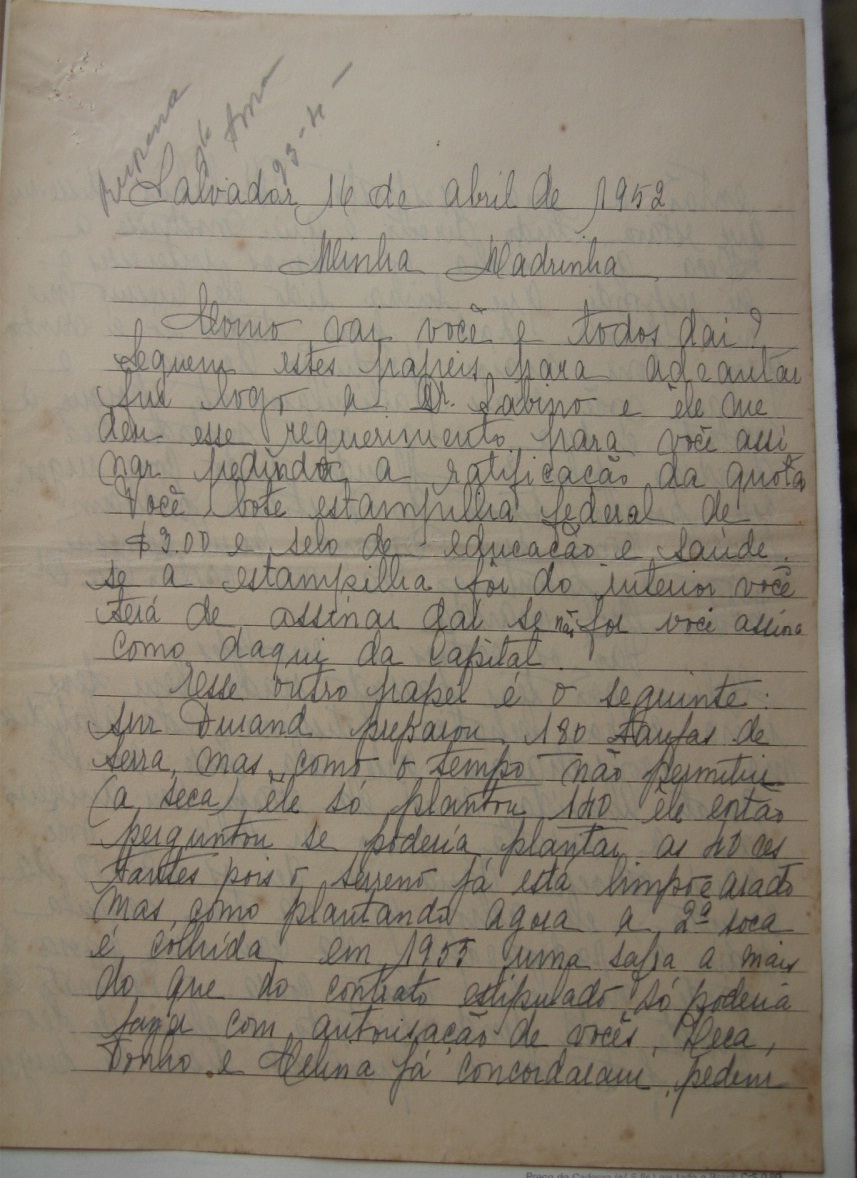 Salvador 16 de abril de 1952
Minha Madrinha
Como vai você e todos dai?
Seguem estes papeis para adeantar
fui logo a Dr. Sabino e êle me
deu esse requerimento para você assi
nar pedindo a ratificacão da quota
Você bote estampilha federal de
$3.00 e selo de educacão e saúde.
se a estampilha fôr do interior você
terá de assinar dai se não for você assina
como daqui da Capital.
Esse outro papel é o seguinte:
Durand preparou 180 tarefas de
terra, mas como o tempo não permitiu
(a sêca) êle só plantou 140 êle então
perguntou se poderia plantar as 40 res
tantes pois o terreno já está limpo e arado
mas como plantando agora a 2ª soca
é colhida em 1955 uma safra a mais
do que do contrato estipulado só poderia
fazer com autorisacão de vocês. Deca,
Tonho e Melina já concordaram, pedem